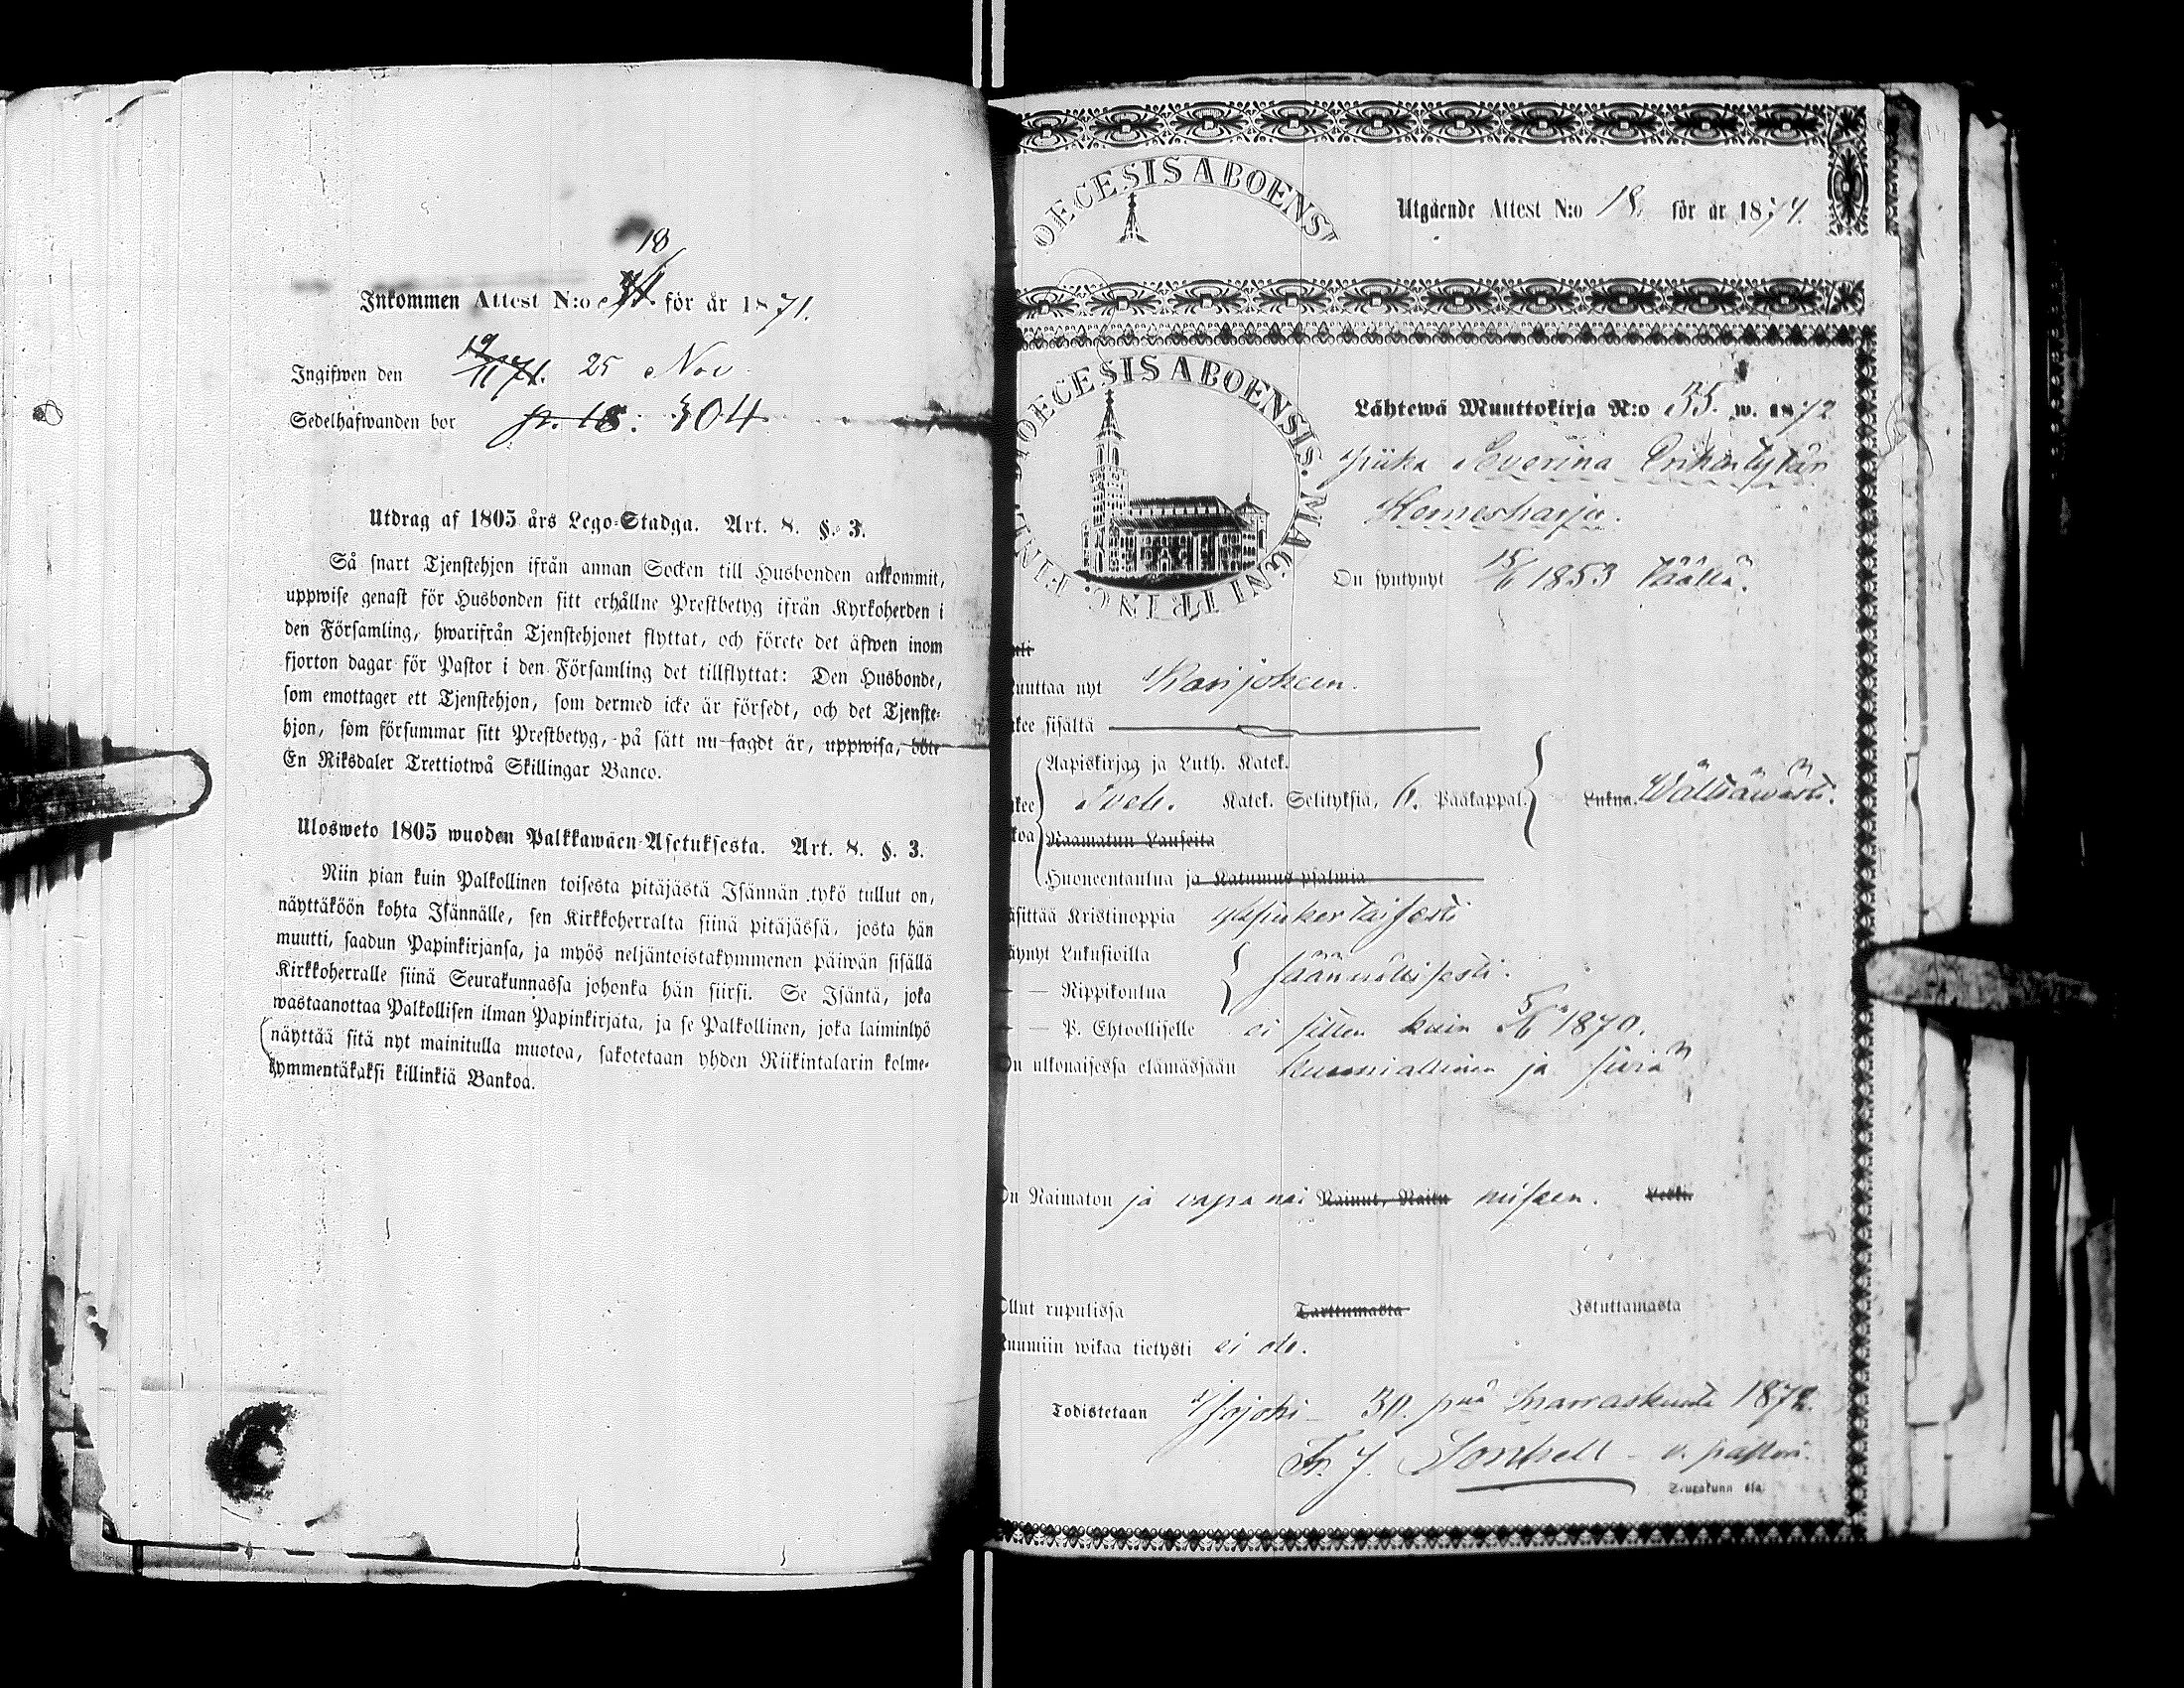 18
Inkommen Attest N:o för år 1871.
Ingifwen den 19/11 71. 25 Nov.
Sedelhafwanden bor p. 18. 304
Utdrag af 1805 års Lego-Stadga. Art. 8. §. 3.
Så snart Tjenstehjon ifrån annan Socken till Husbonden ankommit,
uppwise genast för Husbonden sitt erhållne Prestbetyg ifrån Kyrkoherden i
den Församling, hwarifrån Tjenstehjonet flyttat, och förete det äfwen inom
fjorton dagar för Pastor i den Församling det tillflyttat: Den Husbonde,
som emottager ett Tjenstehjon, som dermed icke är försedt, och det Tjenste-
hjon, som försummar sitt Prestbetyg, på sätt nu sagdt är, uppwisa, böte
En Riksdaler Trettiotwå Skillingar Banco.
Ulosweto 1805 wuoden Palkkawäen-Asetuksesta. Art. 8. §. 3.
Niin pian kuin Palkollinen toisesta pitäjästä Isännän tykö tullut on,
näyttäköön kohta Isännälle, sen Kirkkoherralta siinä pitäjässä, josta hän
muutti, saadun Papinkirjansa, ja myös neljäntoistakymmenen päiwän sisällä
Kirkkoherralle siinä Seurakunnassa johonka hän siirsi. Se Isäntä, joka
wastaanottaa Palkollisen ilman Papinkirjata, ja se Palkollinen, joka laiminlyö
näyttää sitä nyt mainitulla muotoa, sakotetaan yhden Riikintalarin kolme-
kymmentäkaksi killinkiä Bankoa.
OECESIS ABOENSI
Utgående Attest N:o 18. för år 1874.
DIOECESIS ABOENSIS. MAGNI PRINC. FINL.
Lähtewä Muuttokirja N:o 35. w. 1872
Piika Severina Erikintytär
Homesharju.
On syntynyt 15/11 1853 täällä.
uuttaa nyt Karijokeen.
kee sisältä
Aapiskirjaa ja Luth. Katek.
kee Sveb. Katek. Selityksiä, 6. Pääkappal. Lukna. Wälttäwästi.
koa Raamatun Lauseita
Huoneentaulua ja Katumus psalmia
äsittää Kristinoppia yksinkertaisesti
äynyt Lukusioilla
— Rippikoulua säännöllisesti.
— P. Ehtoolliselle ei sitten kuin 5/6 1870.
On ulkonaisessa elämässään kunniallinen ja siviä
On Naimaton ja vapa nai Nainut, Naitu miseen. Leski.
Ollut rupulissa Tarttumasta Istuttamasta
uumiin wikaa tietysti ei ole.
Todistetaan Isojoki 30. pnä marraskuuta 1872.
Fr. J. v. pastori.
Seurakunn